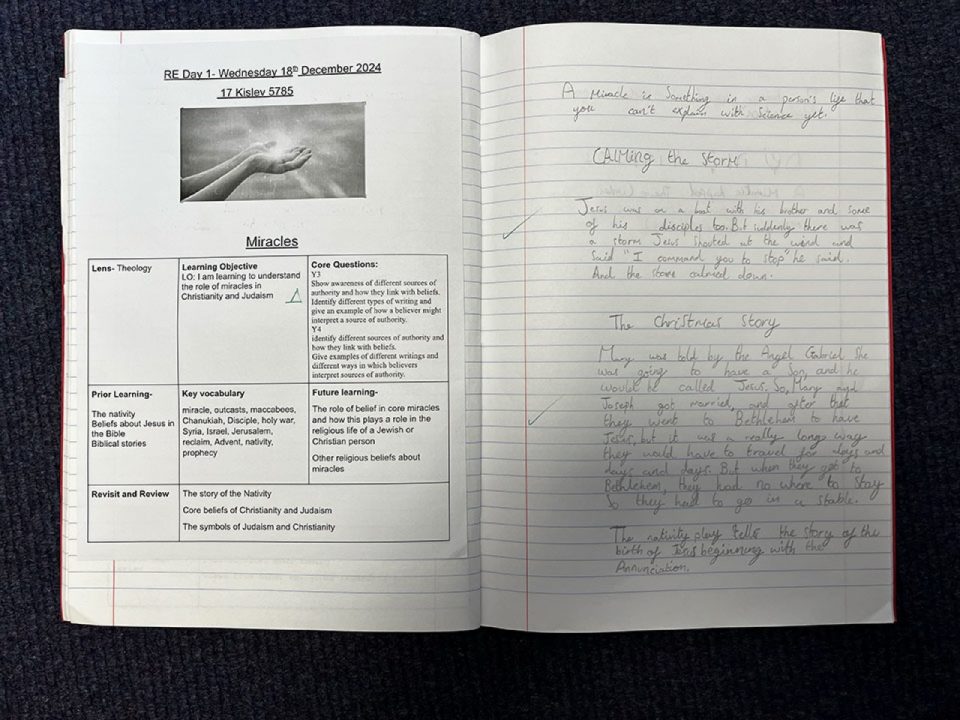 RE Day 1- Wednesday 18th December 2024
17 Kislev 5785
Miracles
Lens- Theology
Learning Objective
LO: I am learning to understand
the role of miracles in
Christianity and Judaism
Core Questions:
Y3
Show awareness of different sources of
authority and how they link with beliefs.
Identify different types of writing and
give an example of how a believer might
interpret a source of authority.
Y4
identify different sources of authority and
how they link with beliefs.
Give examples of different writings and
different ways in which believers
interpret sources of authority.
Prior Learning-
The nativity
Beliefs about Jesus in
the Bible
Biblical stories
Key vocabulary
miracle, outcasts, maccabees,
Chanukiah, Disciple, holy war,
Syria, Israel, Jerusalem,
reclaim, Advent, nativity,
prophecy
Future learning-
The role of belief in core miracles
and how this plays a role in the
religious life of a Jewish or
Christian person
Other religious beliefs about
miracles
Revisit and Review
The story of the Nativity
Core beliefs of Christianity and Judaism
The symbols of Judaism and Christianity
A Miracle is Something in a person's life that
you can't explain with Science yet.
CAlMing the storm
Jesus was on a boat with his brother and some
of his disciples too. But suddenly there was
a storm Jesus shouted at the wind and
said "I command you to stop" he said.
And the storm calmed down.
The Christmas Story
Mary was told by the Angel Gabriel She
was going to have a Son, and he
would be called Jesus. So, Mary and
Joseph got married, and after that
they went to Bethlehem to have
Jesus, but it was a really long way
they would have to travel for days and
days and days. But when they got to
Bethlehem, they had no where to stay
So they had to go in a stable.
The nativity play tells the story of the
birth of Jesus beginning with the
Annunciation.